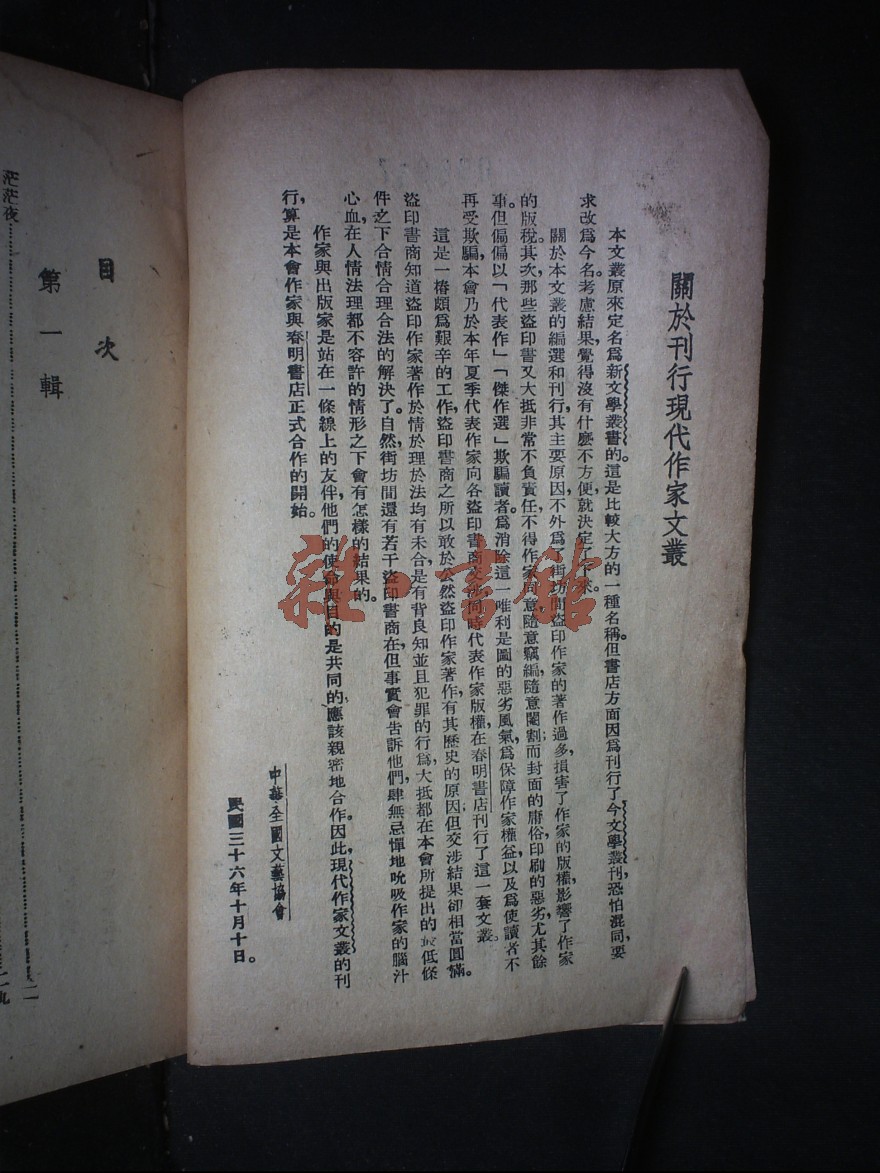 關於刊行現代作家文叢
本文叢原來定名爲新文學叢書的。這是比較大方的一種名稱。但書店方面因爲刊行了今文學叢刊，恐怕混同，要
求改爲今名。考慮結果，覺得沒有什麼不方便，就決定了下來。
關於本文叢的編選和刊行，其主要原因，不外爲了街坊間盜印作家的著作過多，損害了作家的版權，影響了作家
的版稅。其次，那些盜印書又大抵非常不負責任，不得作家同意，隨意竊編，隨意閹割；而封面的庸俗，印刷的惡劣，尤其餘
事。但偏偏以「代表作」「傑作選」欺騙讀者。爲消除這一唯利是圖的惡劣風氣，爲保障作家權益，以及爲使讀者不
再受欺騙，本會乃於本年夏季代表作家向各盜印書商交涉，同時代表作家版權，在春明書店刊行了這一套文叢。
這是一樁頗爲艱辛的工作，盜印書商之所以敢於公然盜印作家著作，有其歷史的原因，但交涉結果卻相當圓滿。
盜印書商知道盜印作家著作於情於理於法均有未合，是有背良知並且犯罪的行爲，大抵都在本會所提出的最低條
件之下合情合理合法的解決了。自然，街坊間還有若干盜印書商在，但事實會告訴他們，肆無忌憚地吮吸作家的腦汁
心血，在人情法理都不容許的情形之下會有怎樣的結果的。
作家與出版家是站在一條線上的友伴，他們的使命與目的是共同的，應該親密地合作。因此，現代作家文叢的刊
行，算是本會作家與春明書店正式合作的開始。
中華全國文藝協會
民國三十六年十月十日。
目次
第一輯
茫茫夜……一
雜·書館